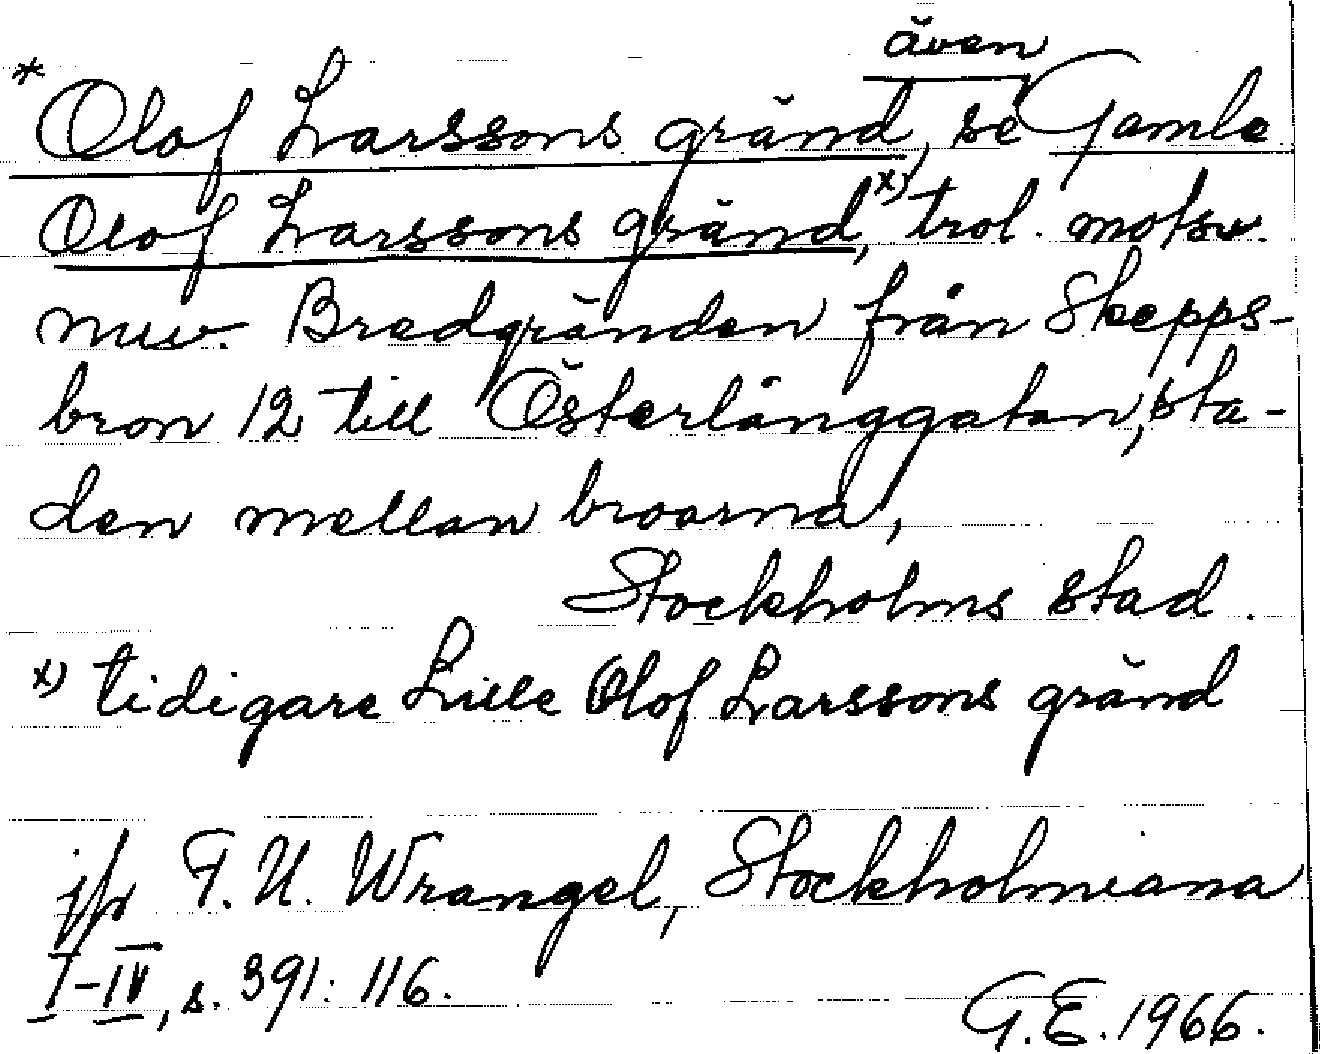 även
* Olof Larssons gränd, se Gamle
Olof Larssons gränd, x) trol. motsv.
nuv. Bredgränden från Skepps-
bron 12 till Österlånggatan, sta-
den mellan broarna,
Stockholms stad.
x) tidigare Lille Olof Larssons gränd
jfr F. U. Wrangel, Stockholmiana
I-IV, s. 391: 116.
G.E. 1966.